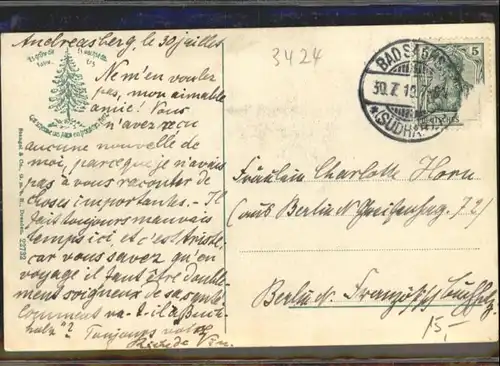 Andreasberg, le 30 juillet
Ne m'en voulez
pas, mon aimable
amie! Vous
n'avez reçu
aucune nouvelle de
moi, parceque je n'avais
pas à vous raconter de
choses importantes. - Il
fait toujours mauvais
temps ici, et c'est triste,
car vous savez qu'en
voyage il faut être double-
ment soigneux de sa santé.
Comment va-t-il à "Buch-
holz"? Toujours votre
3424
BAD SACHSA
30.7.10.7-8
*(SÜDHARZ)
5
Fräulein Charlotte Horn
(aus Berlin N Greifenhag. 72)
Berlin N. Französisch Buchholz
15,-
Stengel & Co., G. m. b. H., Dresden. 22732